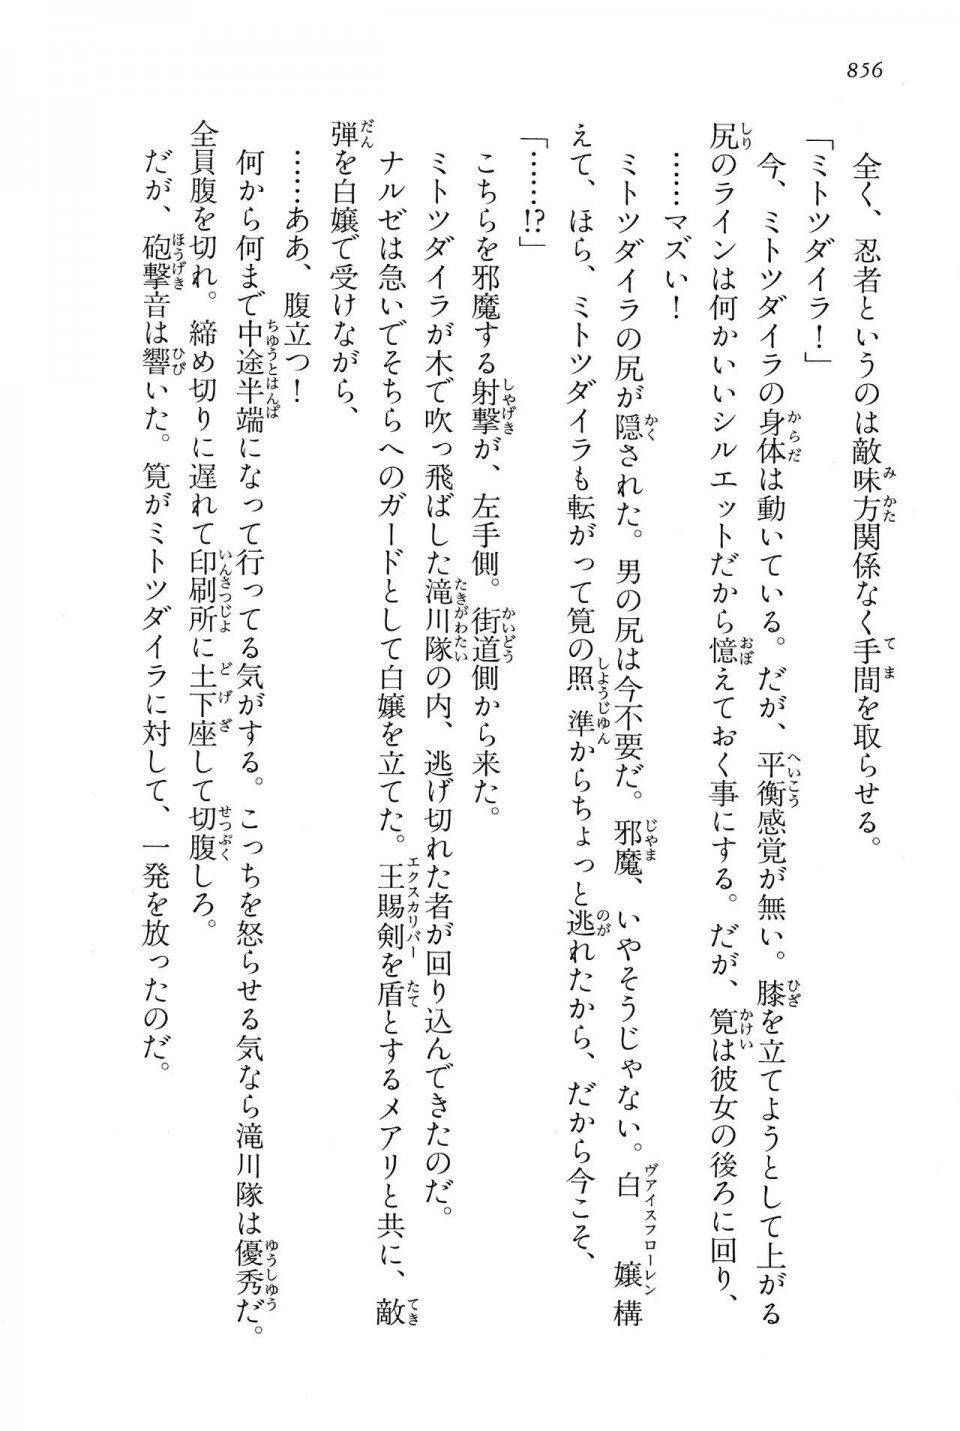 856
全く、忍者というのは敵味方関係なく手間を取らせる。
「ミトツダイラ！」
今、ミトツダイラの身体は動いている。だが、平衡感覚が無い。膝を立てようとして上がる
尻のラインは何かいいシルエットだから憶えておく事にする。だが、筧は彼女の後ろに回り、
……マズい！
ミトツダイラの尻が隠された。男の尻は今不要だ。邪魔、いやそうじゃない。白嬢構
えて、ほら、ミトツダイラも転がって筧の照準からちょっと逃れたから、だから今こそ、
「……!?」
こちらを邪魔する射撃が、左手側。街道側から来た。
ミトツダイラが木で吹っ飛ばした滝川隊の内、逃げ切れた者が回り込んできたのだ。
ナルゼは急いでそちらへのガードとして白嬢を立てた。王賜剣を盾とするメアリと共に、敵
弾を白嬢で受けながら、
……ああ、腹立つ！
何から何まで中途半端になって行ってる気がする。こっちを怒らせる気なら滝川隊は優秀だ。
全員腹を切れ。締め切りに遅れて印刷所に土下座して切腹しろ。
だが、砲撃音は響いた。筧がミトツダイラに対して、一発を放ったのだ。